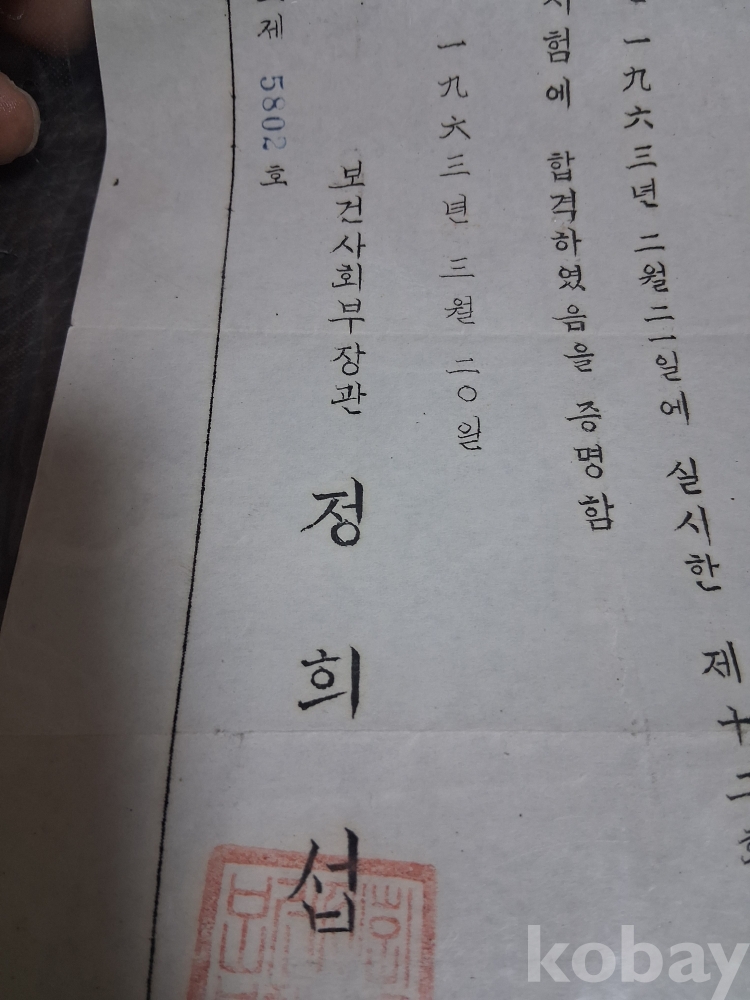 一九六三년 二月二一일에 실시한 제十二회
시험에 합격하였음을 증명함
一九六三년 三월 二〇일
보건사회부장관 정희섭
제 5802 호
kobay